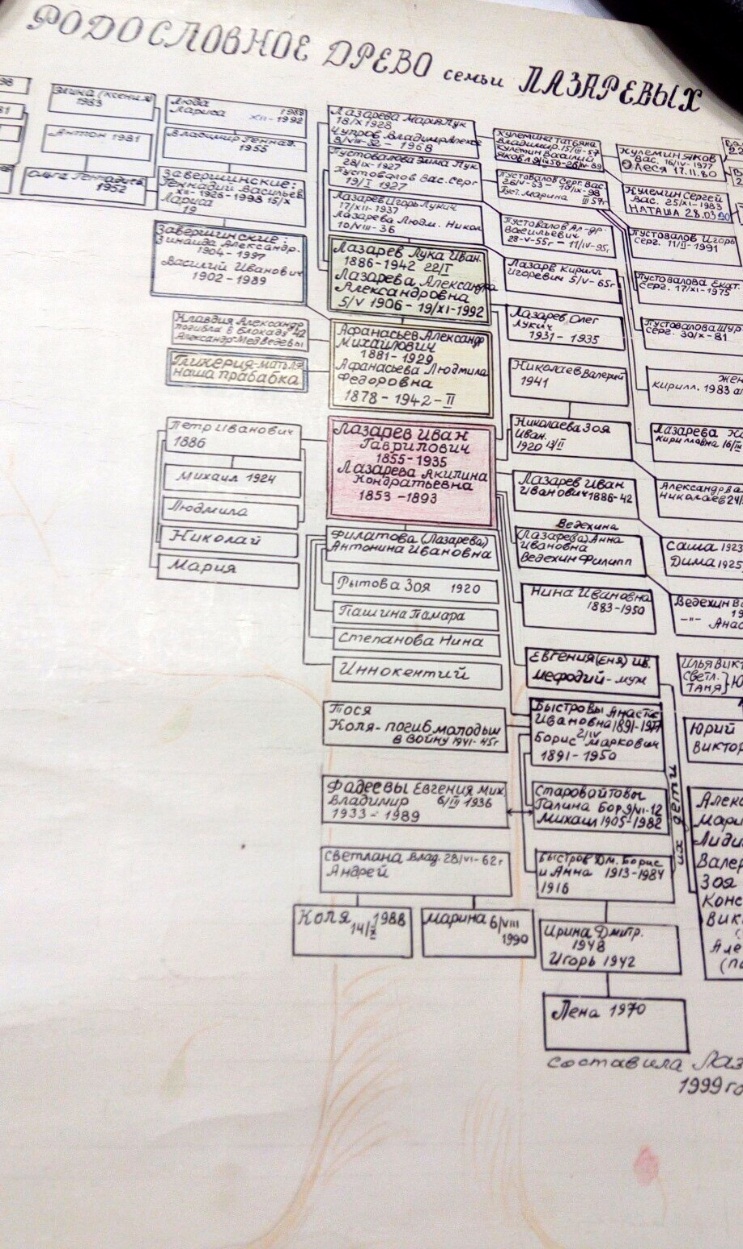 РОДОСЛОВНОЕ ДРЕВО семьи ЛАЗАРЕВЫХ
1983
Антон 1981
1952
Люда 1988
Лариса XII-1992
Владимир Геннад.
1955
Завершинские:
Геннадий Василье
XII-1926-1998 15/X
Лариса
19
Завершинские:
Зинаида Александр.
1904-1997
Василий Иванович
1902-1989
Клавдия Александр
погибли в блокаду 42
Александр Медведевы
Гликерия-мать
наша прабабка
Петр Иванович
1886
Михаил 1924
Людмила
Николай
Мария
Лазарева Мария Лук
18/X 1928
Чупров Владимир
1968
Пустовалова Зина Лук
28/IX-1927
Пустовалов Вас. Серг
19/I 1927
Лазарев Игорь Лукич
17/XII-1937
Лазарева Людм. Никол
10/VIII-36
Лазарев Лука Иван.
1886-1942 22/I
Лазарева Александра
Александровна
5/V 1906-19/XI-1992
Афанасьев Александр
Михайлович
1881-1929
Афанасьева Людмила
Федоровна
1878-1942-II
Лазарев Иван
Гаврилович
1855-1935
Лазарева Акилина
Кондратьевна
1853-1893
Филатова (Лазарева)
Антонина Ивановна
Рытова Зоя 1920
Пашина Тамара
Степанова Нина
Иннокентий
Тося
Коля-погиб молодым
в войну 1941-45г
Фадеевы Евгения Мих.
Владимир 6/III 1936
1933-1989
Светлана Влад. 28/VI-62г
Андрей
Коля 1988
14/X
Марина 6/VIII
1990
Кулемина Татьяна
Владимир.
Кулемин Василий
Пустовалов Серг. Вас
Пуст. Марина III 57г
Пустовалов Ал-др.
Васильевич
28-V-55г-11/IV-95г
Лазарев Кирилл
Игоревич 5/V-65г
Лазарев Олег
Лукич
1931-1935
Николаев Валерий
1941
Николаева Зоя
Иван.
1920 12/II
Лазарев Иван
Иванович 1886-42
Ведехина
(Лазарева) Анна
Ивановна
Ведехин Филипп
Нина Ивановна
1883-1950
Евгения (Еня) Ив.
Мефодий-муж
Быстровы Анастас
Ивановна 1891-1977
2/IV
Борис Маркович
1891-1950
Старовойтовы
Галина Бор 9/VI-12
Михаил 1905-1982
Быстров Дм. Борис
и Анна 1913-1984
1916
Ирина Дмитр.
1948
Игорь 1942
Лена 1970
их дети
Кулемин Яков
Вас. 16/IV-1977
Олеся 17.11.80
Кулемин Сергей
Вас. 25/XI-1983
Наташа 28.03.90
Пустовалов Игорь
Серг. 11/II-1991
Пустовалова Екат.
Серг. 17/XI-1975
Пустовалова Шур.
Серг. 30/X-81
Кирилл. 1983
Лазарева
Кирилловна
Александр
Николаев
Саша 1923
Дима 1925
Ведехин
-"- Анас
Илья Викт
Светл.
Таня
Юрий
Виктор
Алек
Мари
Лиди
Валер
Зоя
Конс
Вик
Але
составила Лаз
1999 го